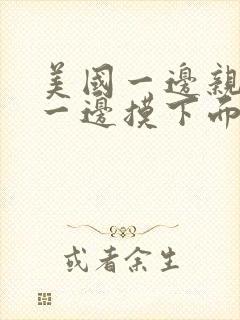 美國一邊親
一邊摸下面
或者余生